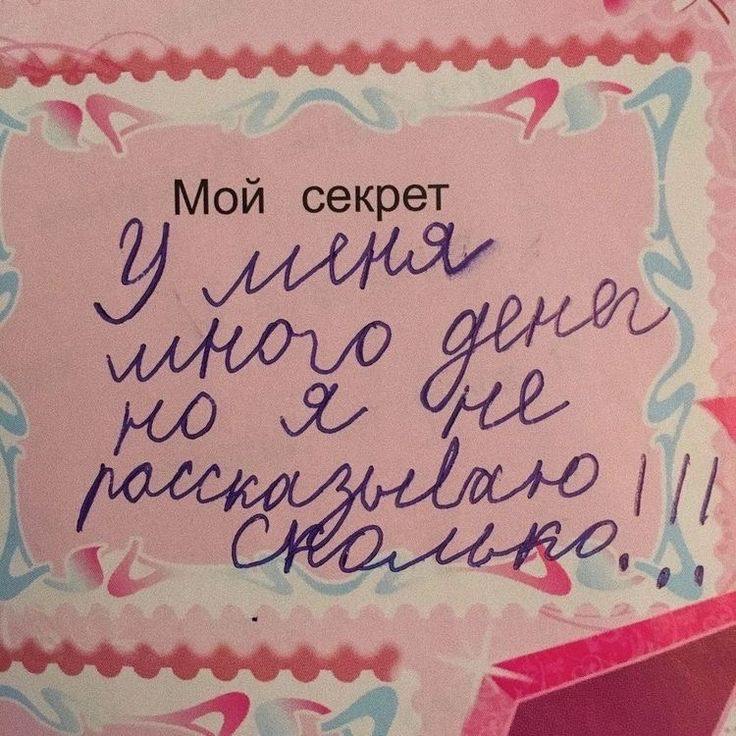 Мой секрет
У меня
много денег
но я не
рассказываю!!!
сколько.